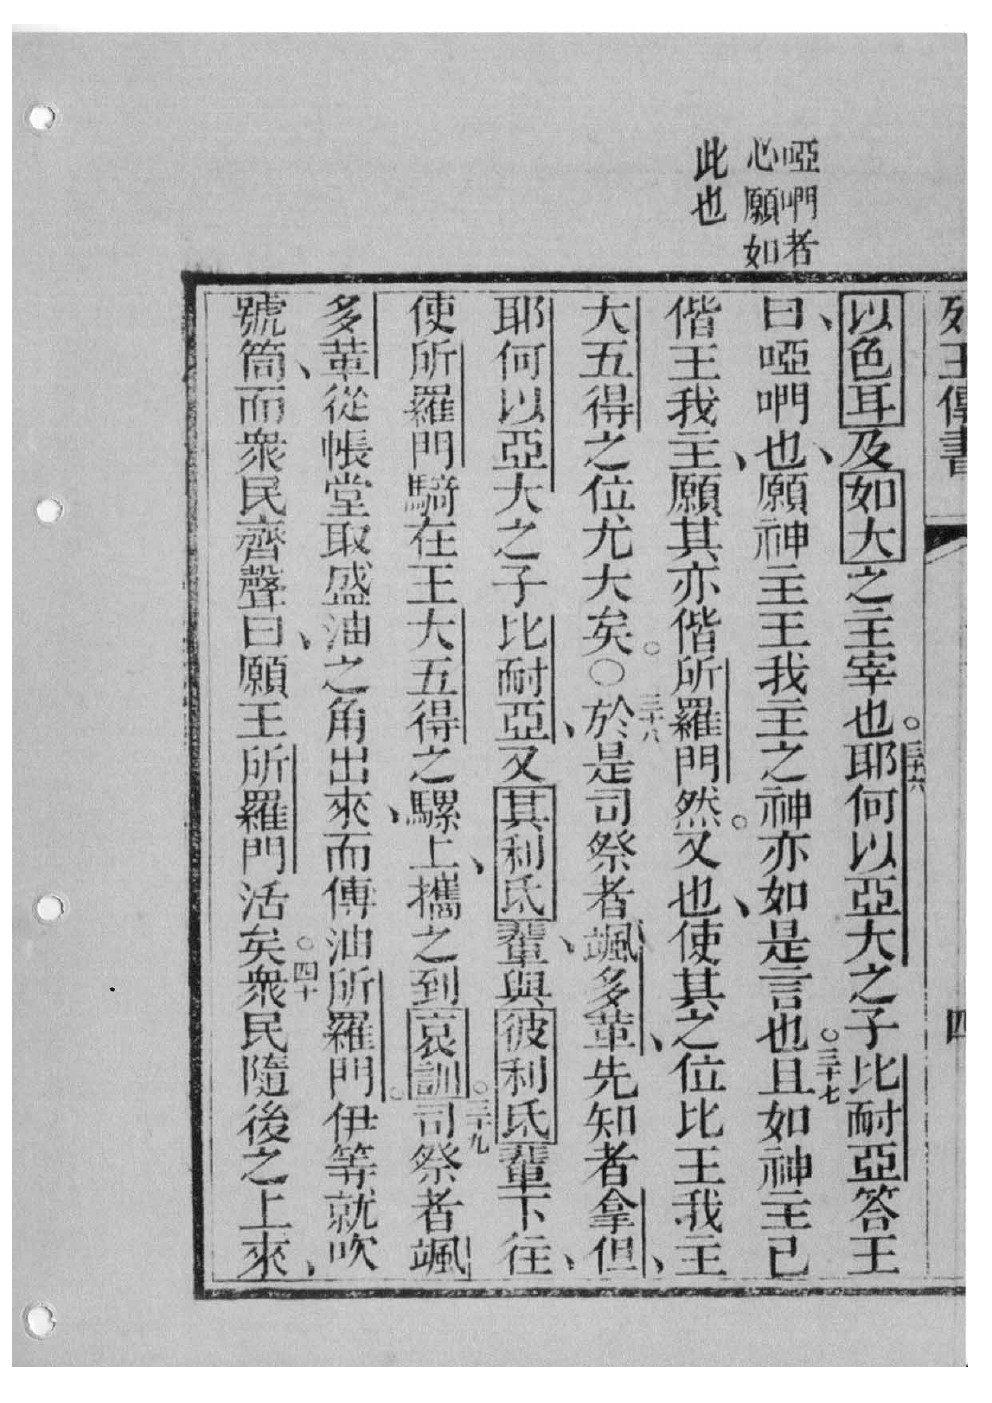 啞呷者
心願如
此也
列王傳書
四
以色耳及如大之主宰也。三十六耶何以亞大之子比耐亞答王
曰、啞呷也、願神主王我主之神亦如是言也。三十七且如神主已
偕王我主、願其亦偕所羅門然。又也、使其之位比王我主
大五得之位尤大矣。○三十八於是司祭者颯多輩、先知者拿但、
耶何以亞大之子比耐亞、又其利氐輩、與彼利氐輩下往、
使所羅門騎在王大五得之騾上、攜之到哀訓。三十九司祭者颯
多輩從帳堂取盛油之角出來、而傅油所羅門。伊等就吹
號筒、而衆民齊聲曰、願王所羅門活矣。四十衆民隨後之上來、